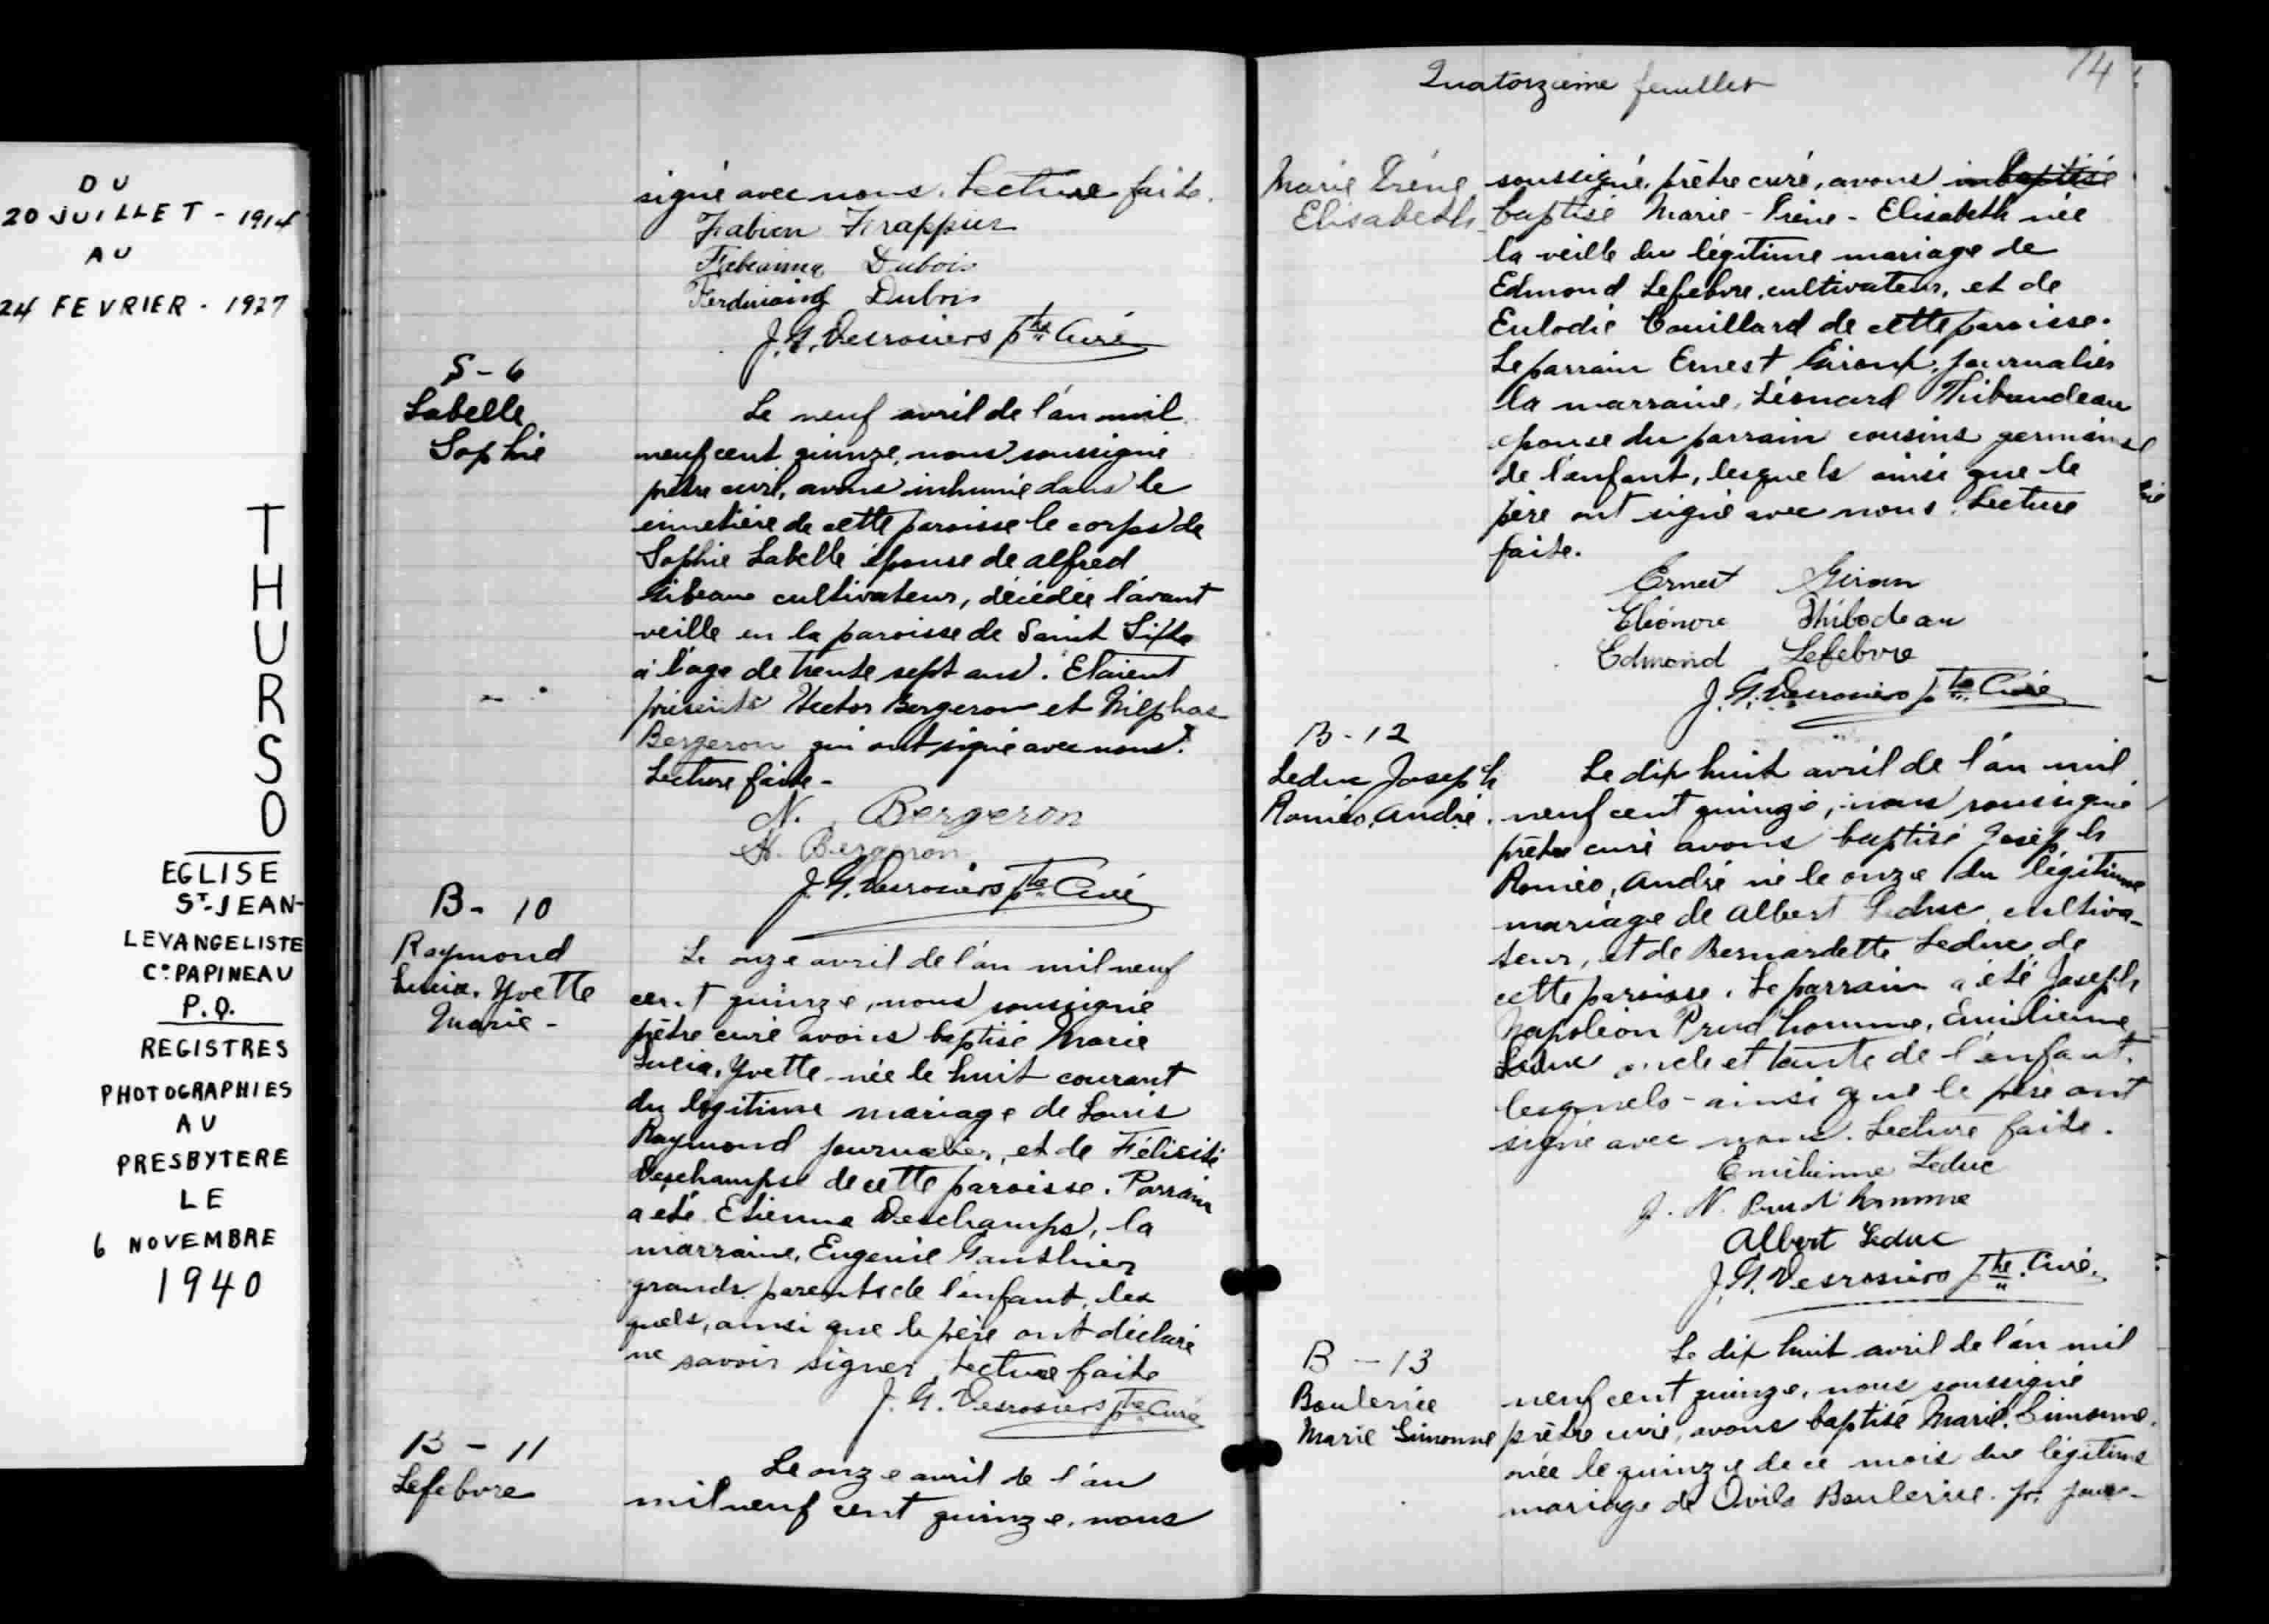 DU
20 JUILLET - 1914
AU
24 FEVRIER - 1927
THURSO
EGLISE
ST-JEAN-
LEVANGELISTE
Co PAPINEAU
P.Q.
REGISTRES
PHOTOGRAPHIES
AU
PRESBYTERE
LE
6 NOVEMBRE
1940
signé avec nous. Lecture faite.
Fabien Frappier
Fabianna Dubois
Ferdinand Dubois
J. G. Desrosiers Ptre Curé
S - 6
Labelle
Sophie
Le neuf avril de l'an mil
neuf cent quinze, nous soussigné
prêtre curé, avons inhumé dans le
cimetière de cette paroisse le corps de
Sophie Labelle épouse de Alfred
cultivateur, décédée l'avant
veille en la paroisse de Saint Sixte
à l'age de trente sept ans. Etaient
présents Hector Bergeron et
Bergeron qui ont signé avec nous.
Lecture faite -
N. Bergeron
H. Bergeron
J. G. Desrosiers Ptre Curé
B - 10
Raymond
Lucia, Yvette
Marie -
Le onze avril de l'an mil neuf
cent quinze, nous soussigné
prêtre curé avons baptisé Marie
Lucia, Yvette née le huit courant
du légitime mariage de Louis
Raymond journalier, et de Félicité
Deschamps de cette paroisse. Parrain
a été Etienne Deschamps, la
marraine, Eugenie Gauthier
grands parents de l'enfant, les
quels, ainsi que le père ont déclaré
ne savoir signer, Lecture faite
J. G. Desrosiers Ptre Curé
B - 11
Lefebvre
Le onze avril de l'an
mil neuf cent quinze, nous
Quatorzième feuillet
74
Marie Irène
Elisabeth
soussigné, prêtre curé, avons
baptisé Marie - Irène - Elisabeth née
la veille du légitime mariage de
Edmond Lefebvre, cultivateur, et de
Eulodie Couillard de cette paroisse.
Le parrain Ernest Giroux, journalier
la marraine, Léonard Thibaudeau
épouse du parrain cousins germains
de l'enfant, lesquels ainsi que le
père ont signé avec nous. Lecture
faite.
Ernest Girou
Eléonore Thibodeau
Edmond Lefebvre
J. G. Desrosiers Ptre Curé
B - 12
Leduc Joseph
Roméo, André.
Le dix huit avril de l'an mil
neuf cent quinze, nous soussigné
prêtre curé avons baptisé Joseph
Roméo, André né le onze du légitime
mariage de Albert Leduc, cultiva-
teur, et de Bernardette Leduc, de
cette paroisse. Le parrain a été Joseph
Napoléon Prud'homme, Emilienne
Leduc oncle et tante de l'enfant.
lesquels - ainsi que le père ont
signé avec nous. Lecture faite.
Emilienne Leduc
J. N. Prud'homme
Albert Leduc
J. G. Desrosiers Ptre Curé.
B - 13
Boulerice
Marie Simonne
Le dix huit avril de l'an mil
neuf cent quinze, nous soussigné
prêtre curé, avons baptisé Marie, Simonne.
née le quinze de ce mois du légitime
mariage de Ovila Boulerice. jour-